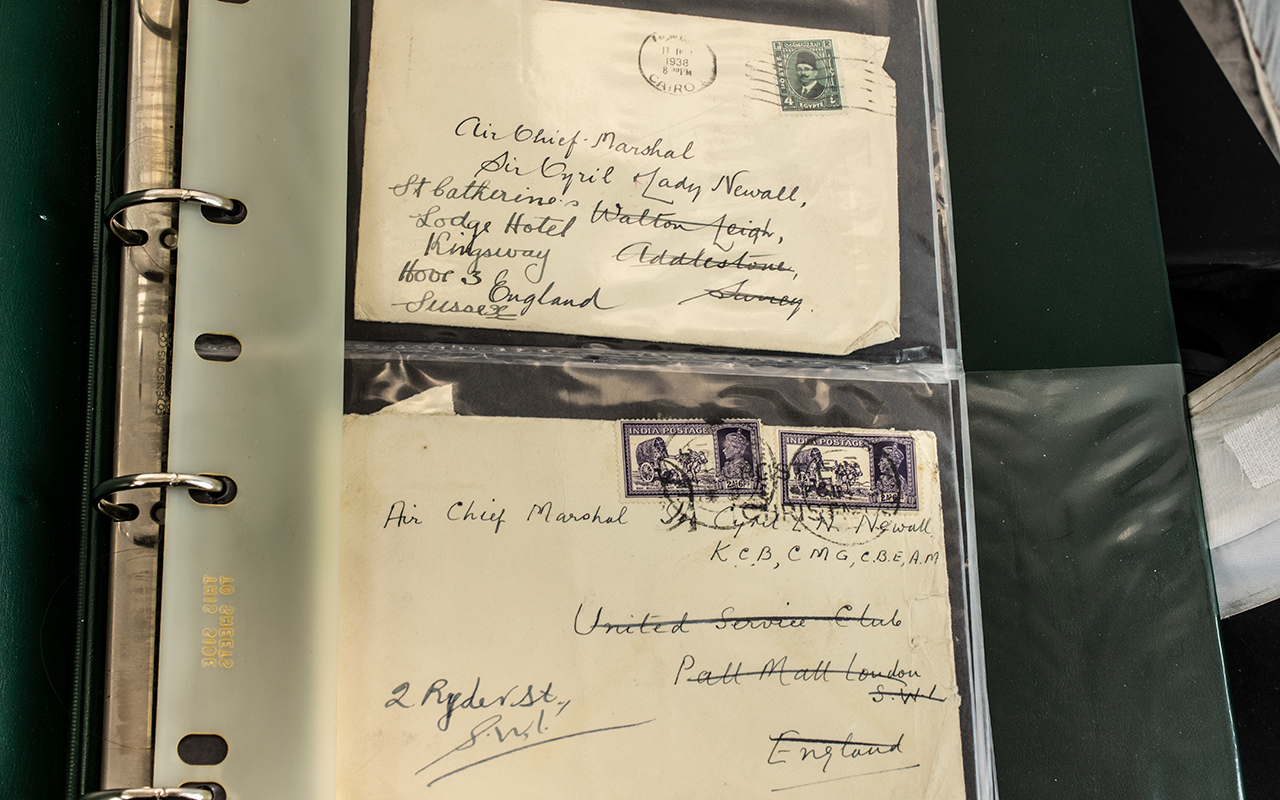 1938
8 PM
CAIRO
POSTES
4
EGYPTE
Air Chief Marshal
Sir Cyril & Lady Newall,
St Catherine's
Lodge Hotel
Walton Leigh,
Kingsway
Addlestone,
Hove 3
Surrey.
England
Sussex
INDIA POSTAGE
INDIA POSTAGE
Air Chief Marshal Sir Cyril L. N. Newall
K.C.B, C M G, C.B.E, A.M
United Service Club
Pall Mall London
S.W.1
2 Ryder St.,
S.W.1.
England
THIS SIDE
TO SHEETS